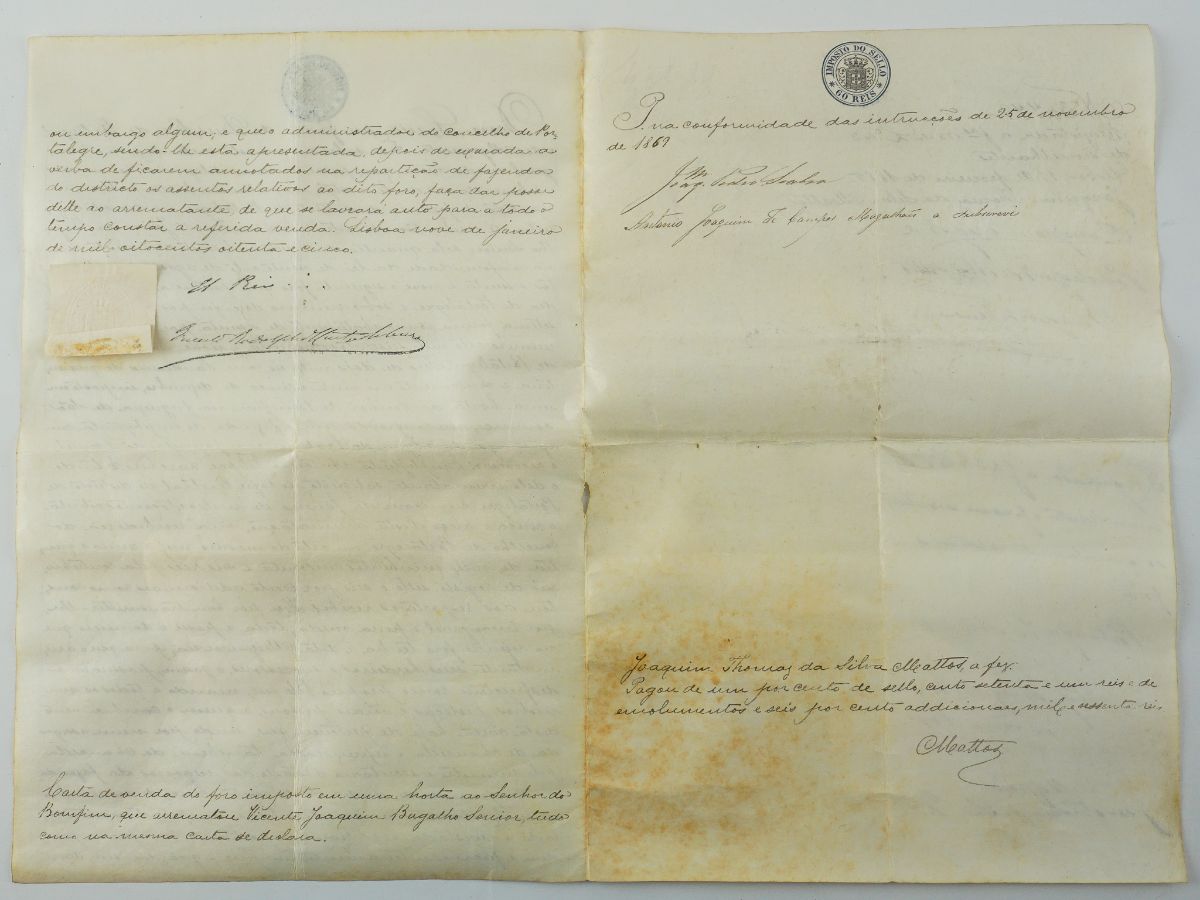 ou embargo algum; e que o administrador do concelho de Por-
talegre, sendo-lhe esta apresentada, depois de exarada a
verba de ficarem annotados na repartição de fazenda
do districto os assentos relativos ao dito foro, faça dar posse
delle ao arrematante, de que se lavrará auto para a todo o
tempo constar a referida venda. Lisboa nove de janeiro
de mil oitocentos oitenta e cinco.
El Rei
Carta de venda do foro imposto em uma horta ao Senhor do
Bomfim, que arrematou Vicente Joaquim Bugalho Senior, tudo
como na mesma carta se declara.
IMPOSTO DO SELLO
60 REIS
P. na conformidade das intrucções de 25 de novembro
de 1869
Joaqm Pedro Seabra
Antonio Joaquim de Campos Magalhães a subscrevi
Joaquim Thomaz da Silva Mattos, a fez.
Pagou de um por cento de sello, cento setenta e um reis e de
emolumentos e seis por cento addicionaes, mil e sessenta reis
Mattos